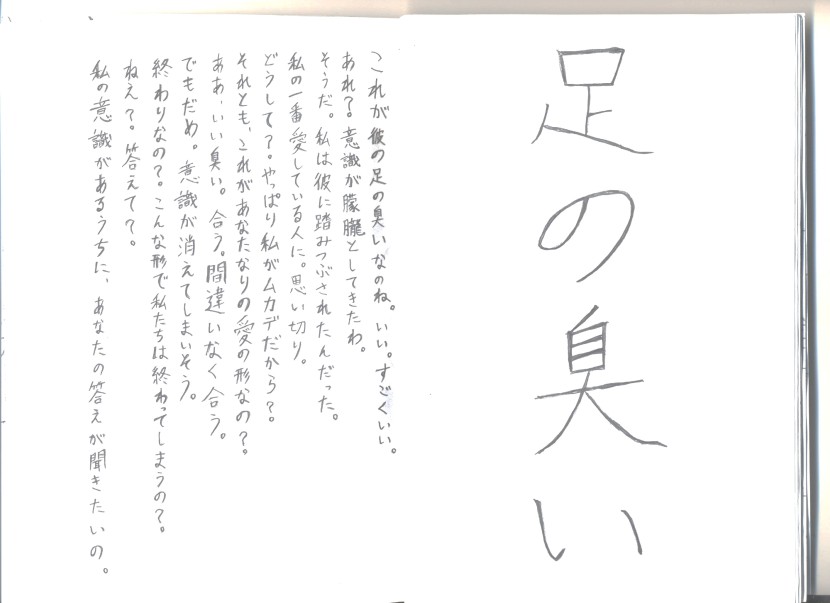 足の臭い
これが彼の足の臭いなのね。いい。すごくいい。
あれ？。意識が朦朧としてきたわ。
そうだ。私は彼に踏みつぶされたんだった。
私の一番愛している人に。思い切り。
どうして？。やっぱり私がムカデだから？
それとも、これがあなたなりの愛の形なの？。
ああ、いい臭い。合う。間違いなく合う。
でもだめ。意識が消えてしまいそう。
終わりなの？。こんな形で私たちは終わってしまうの？。
ねえ？。答えて？。
私の意識があるうちに、あなたの答えが聞きたいの。